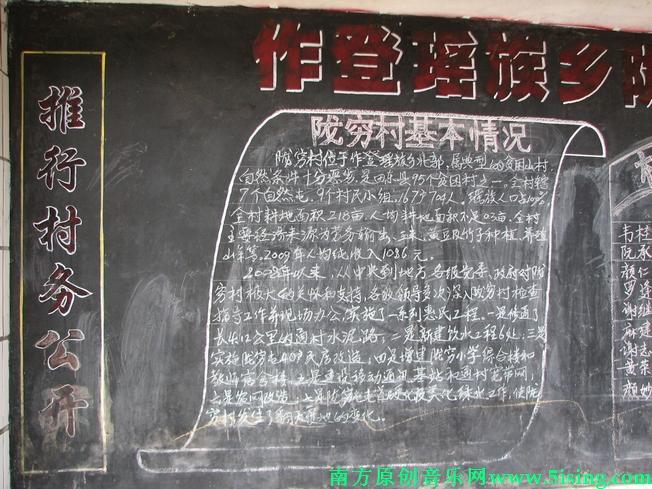 作登瑶族乡陇
推行村务公开
陇穷村基本情况
陇穷村位于作登瑶族乡北部,属典型的贫困山村
自然条件十分恶劣,是田东县95个贫困村之一。全村辖
7个自然屯,9个村民小组,167户704人,瑶族人口占100%
全村耕地面积218亩,人均耕地面积不足0.3亩,全村
主要经济来源为劳务输出、玉米、黄豆及竹子种植,养殖
山羊等。2009年人均纯收入1086元。
2008年以来,从中央到地方各级党委、政府对陇
穷村极大的关怀和支持,各级领导多次深入陇穷村检查
指导工作并现场办公,实施了一系列惠民工程。一是修通了
公里的通村水泥路;二是新建饮水工程6处;三是
实施陇穷屯40户民房改造,四是增建陇穷小学综合楼和
教师宿舍楼,五是建设移动通讯基站和通村宽带网,
六是农网改造,
穷村发生了翻天覆地的变化。
韦桂
阮承
颜仁
罗逢
谢继
麻建
谢志
黄荣
颜妙
南方原创音乐网www.5ising.com